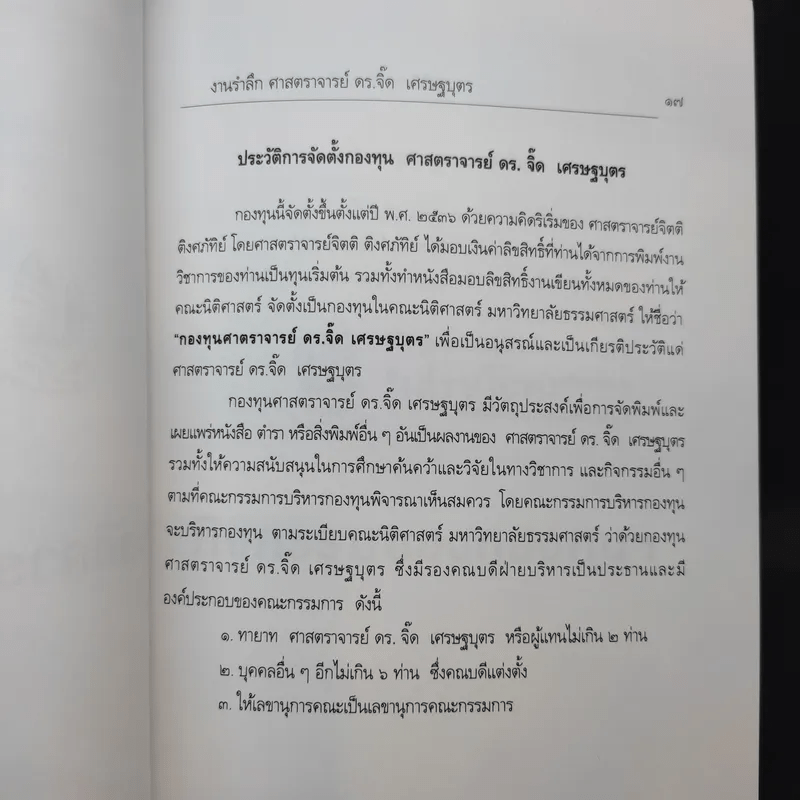 งานรำลึก ศาสตราจารย์ ดร.จิ๊ด เศรษฐบุตร
๑๗
ประวัติการจัดตั้งกองทุน ศาสตราจารย์ ดร. จิ๊ด เศรษฐบุตร
กองทุนนี้จัดตั้งขึ้นตั้งแต่ปี พ.ศ. ๒๕๓๖ ด้วยความคิดริเริ่มของ ศาสตราจารย์จิตติ
ติงศภัทิย์ โดยศาสตราจารย์จิตติ ติงศภัทิย์ ได้มอบเงินค่าลิขสิทธิ์ที่ท่านได้จากการพิมพ์งาน
วิชาการของท่านเป็นทุนเริ่มต้น รวมทั้งทำหนังสือมอบลิขสิทธิ์งานเขียนทั้งหมดของท่านให้
คณะนิติศาสตร์ จัดตั้งเป็นกองทุนในคณะนิติศาสตร์ มหาวิทยาลัยธรรมศาสตร์ ให้ชื่อว่า
"กองทุนศาตราจารย์ ดร.จิ๊ด เศรษฐบุตร" เพื่อเป็นอนุสรณ์และเป็นเกียรติประวัติแด่
ศาสตราจารย์ ดร.จิ๊ด เศรษฐบุตร
กองทุนศาสตราจารย์ ดร.จิ๊ด เศรษฐบุตร มีวัตถุประสงค์เพื่อการจัดพิมพ์และ
เผยแพร่หนังสือ ตำรา หรือสิ่งพิมพ์อื่น ๆ อันเป็นผลงานของ ศาสตราจารย์ ดร. จิ๊ด เศรษฐบุตร
รวมทั้งให้ความสนับสนุนในการศึกษาค้นคว้าและวิจัยในทางวิชาการ และกิจกรรมอื่น ๆ
ตามที่คณะกรรมการบริหารกองทุนพิจารณาเห็นสมควร โดยคณะกรรมการบริหารกองทุน
จะบริหารกองทุน ตามระเบียบคณะนิติศาสตร์ มหาวิทยาลัยธรรมศาสตร์ ว่าด้วยกองทุน
ศาสตราจารย์ ดร.จิ๊ด เศรษฐบุตร ซึ่งมีรองคณบดีฝ่ายบริหารเป็นประธานและมี
องค์ประกอบของคณะกรรมการ ดังนี้
๑. ทายาท ศาสตราจารย์ ดร. จิ๊ด เศรษฐบุตร หรือผู้แทนไม่เกิน ๒ ท่าน
๒. บุคคลอื่น ๆ อีกไม่เกิน ๖ ท่าน ซึ่งคณบดีแต่งตั้ง
๓. ให้เลขานุการคณะเป็นเลขานุการคณะกรรมการ